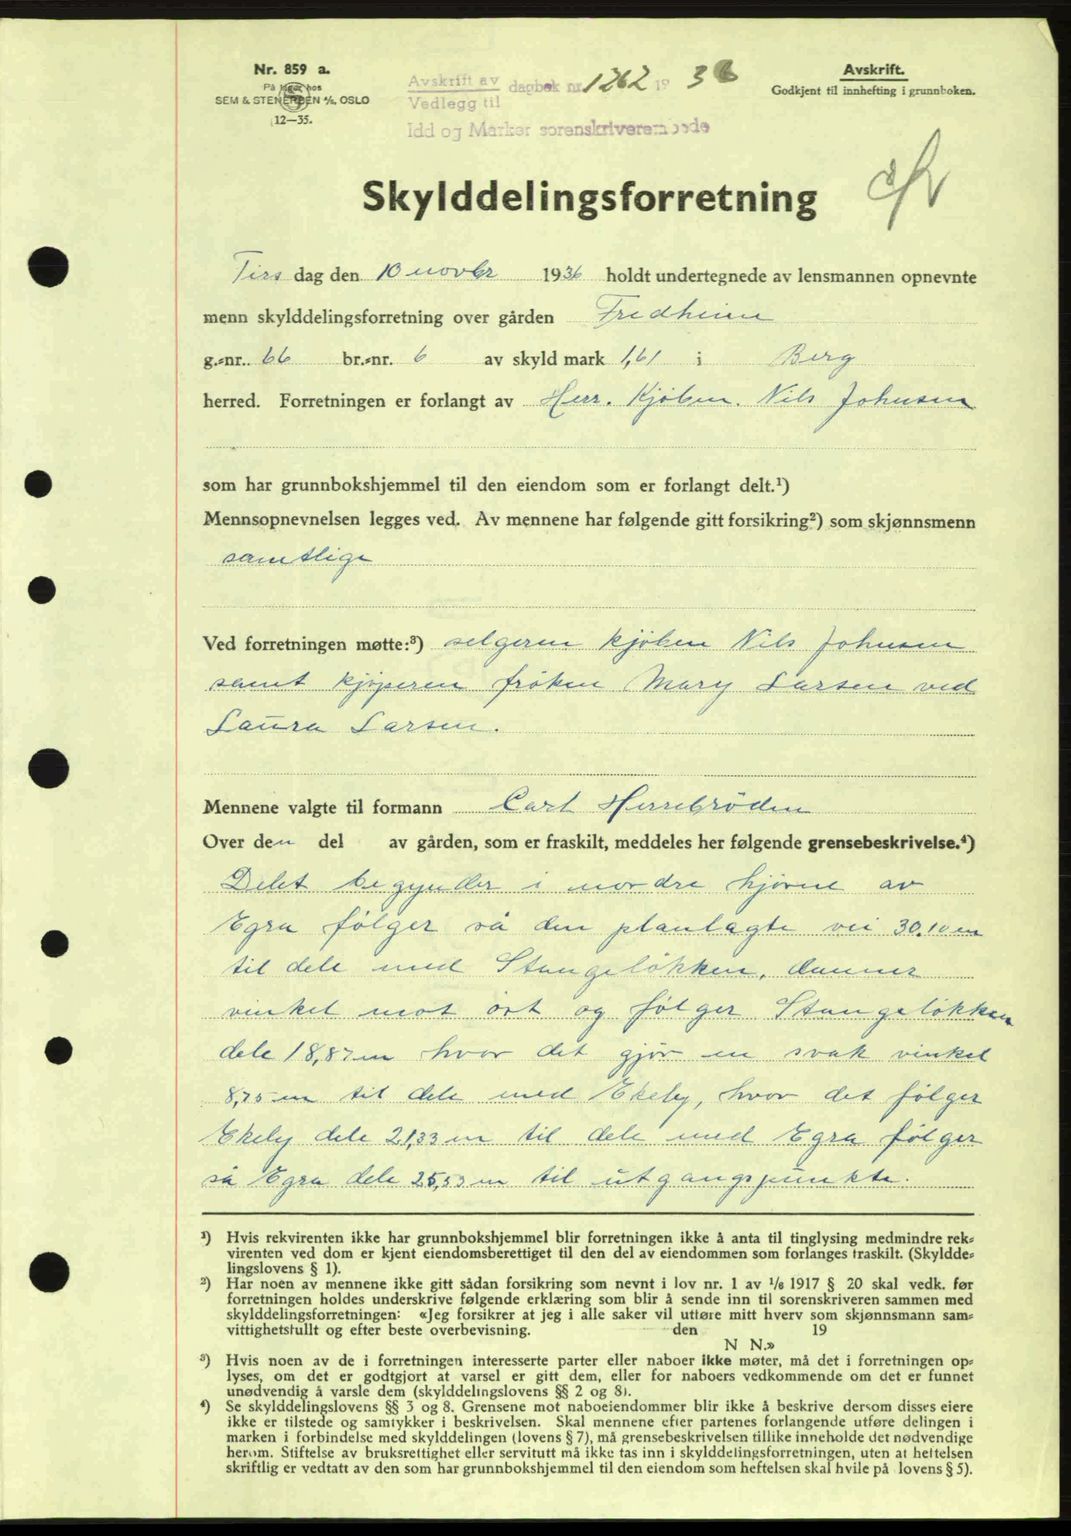 Nr. 859 a.
På lager hos
SEM & STENERSEN A/S, OSLO
12—35.
Avskrift av
Vedlegg til
dagbok nr. 1262 1936
Idd og Marker sorenskriverembede
Avskrift.
Godkjent til innhefting i grunnboken.
Skylddelingsforretning
Tirs dag den 10 novbr 1936 holdt undertegnede av lensmannen opnevnte
menn skylddelingsforretning over gården Fredheim
g.-nr. 66 br.-nr. 6 av skyld mark 1,61 i Berg
herred. Forretningen er forlangt av Herr. Kjøbm. Nils Johnsen
som har grunnbokshjemmel til den eiendom som er forlangt delt.¹)
Mennsopnevnelsen legges ved. Av mennene har følgende gitt forsikring²) som skjønnsmenn
samtlige
Ved forretningen møtte:³) selgeren kjøbm Nils Johnsen
samt kjøperen frøken Mary Larsen ved
Laura Larsen.
Mennene valgte til formann Carl Herrebrøden
Over den del av gården, som er fraskilt, meddeles her følgende grensebeskrivelse.⁴)
Delet begynder i nordre hjørne av
Egra følger så den planlagte vei 30.10 m
til dele med Stangeløkken, danner
vinkel mot øst og følger Stangeløkken
dele 18,87 m hvor det gjør en svak vinkel
8,75 m til dele med Ekeby, hvor det følger
Ekeby dele 21,33 m til dele med Egra følger
så Egra dele 25,53 m til utgangspunkte.
¹) Hvis rekvirenten ikke har grunnbokshjemmel blir forretningen ikke å anta til tinglysing medmindre rek-
virenten ved dom er kjent eiendomsberettiget til den del av eiendommen som forlanges fraskilt. (Skyldde-
lingslovens § 1).
²) Har noen av mennene ikke gitt sådan forsikring som nevnt i lov nr. 1 av 1/6 1917 § 20 skal vedk. før
forretningen holdes underskrive følgende erklæring som blir å sende inn til sorenskriveren sammen med
skylddelingsforretningen: «Jeg forsikrer at jeg i alle saker vil utføre mitt hverv som skjønnsmann sam-
vittighetsfullt og efter beste overbevisning. den 19
N N.»
³) Hvis noen av de i forretningen interesserte parter eller naboer ikke møter, må det i forretningen op-
lyses, om det er godtgjort at varsel er gitt dem, eller for naboers vedkommende om det er funnet
unødvendig å varsle dem (skylddelingslovens §§ 2 og 8).
⁴) Se skylddelingslovens §§ 3 og 8. Grensene mot naboeiendommer blir ikke å beskrive dersom disses eiere
ikke er tilstede og samtykker i beskrivelsen. Skal mennene efter partenes forlangende utføre delingen i
marken i forbindelse med skylddelingen (lovens § 7), må grensebeskrivelsen tillike inneholde det nødvendige
herom. Stiftelse av bruksrettighet eller servitutt må ikke tas inn i skylddelingsforretningen, uten at heftelsen
skriftlig er vedtatt av den som har grunnbokshjemmel til den eiendom som heftelsen skal hvile på lovens § 5).